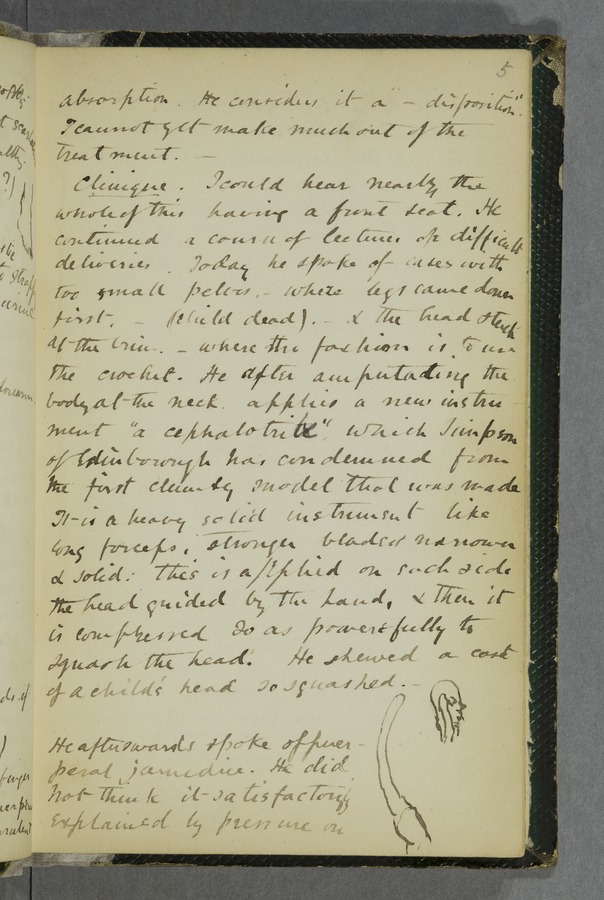 5
absorption. He considers it a "– disposition".
I cannot yet make much out of the
treatment. –
Clinique. I could hear nearly the
whole of this having a front seat. He
continued a course of lectures on difficult
deliveries. Today he spoke of cases with
too small pelvis. – where legs came down
first. – (child dead). – & the head stuck
at the brim. – where the fashion is to use
the crochet. He after amputating the
body at the neck applies a new instru
ment "a cephalotribe" which Simpson
of Edinborough has condemned from
the first clumsy model that was made
It is a heavy solid instrument like
long forceps, stronger blades narrower
& solid: this is applied on each side
the head guided by the hand, & then it
is compressed so as powerfully to
squash the head. He shewed a cast
of a child's head so squashed. –
He afterwards spoke of puer-
peral jaundice. He did
not think it satisfactorily
explained by pressure on